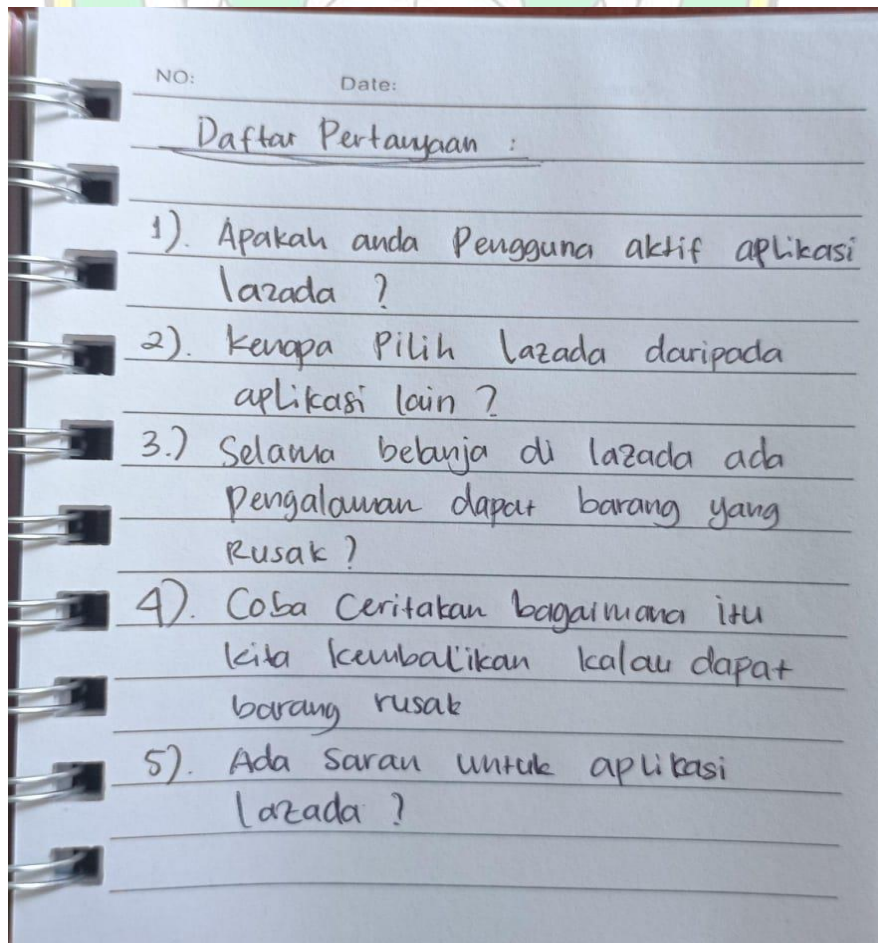 NO: Date:
Daftar Pertanyaan :
1). Apakah anda Pengguna aktif aplikasi
lazada ?
2). Kenapa Pilih Lazada daripada
aplikasi lain ?
3.) Selama belanja di lazada ada
Pengalaman dapat barang yang
Rusak ?
4). Coba Ceritakan bagaimana itu
kita kembalikan kalau dapat
barang rusak
5). Ada Saran untuk aplikasi
Lazada ?